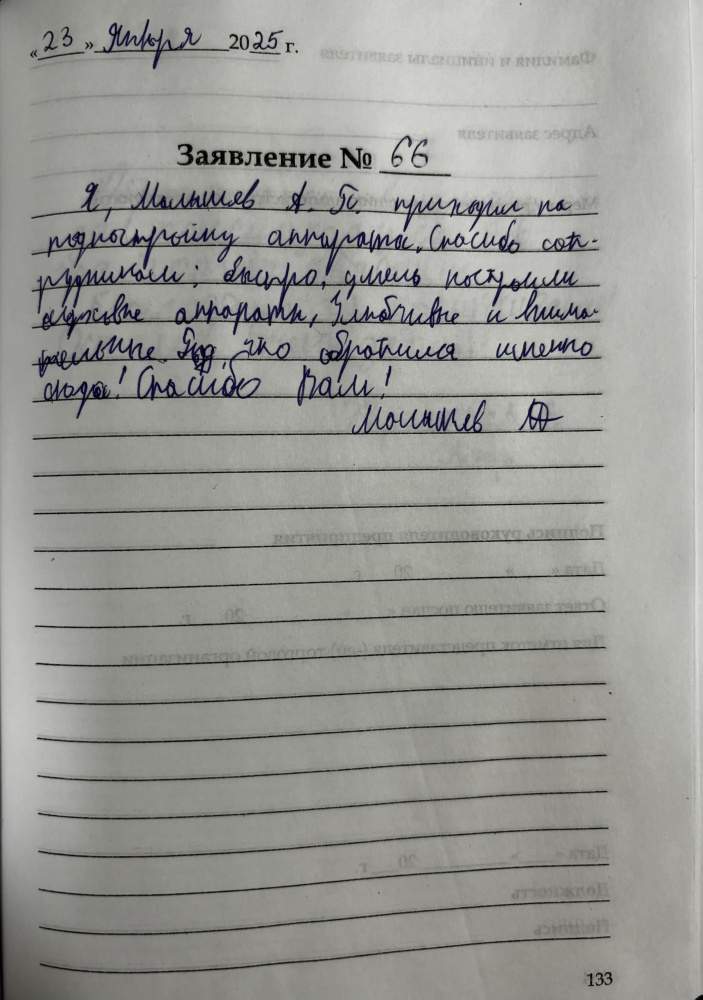 «23» Января 2025 г.
Заявление № 66
Я, Малышев А. П. приходил на
поднастройку аппарата. Спасибо сот-
рудникам: быстро, умело настроили
слуховые аппараты, Улыбчивые и внима-
тельные. Рад, что обратился именно
сюда! Спасибо Вам!
Малышев
133